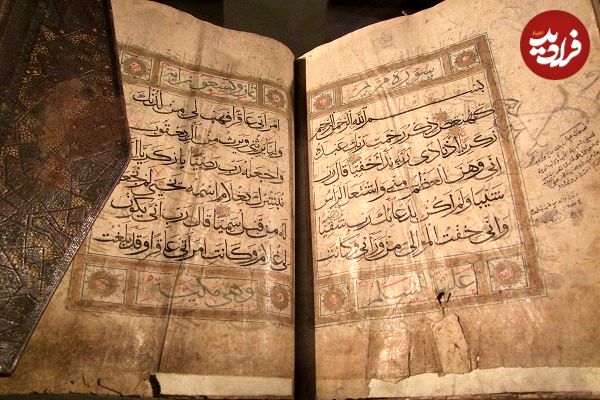 سورة مريم
بسم الله الرحمن الرحيم
كهيعص ذكر رحمت ربك عبده
زكريا اذ نادى ربه نداء خفيا قال رب
اني وهن العظم مني واشتعل الراس
شيبا ولم اكن بدعائك رب شقيا
واني خفت الموالي من ورائي وكانت
عليه السلام
ثمان وتسعون اية
امراتي عاقرا فهب لي من لدنك
وليا يرثني ويرث من ال يعقوب
واجعله رب رضيا يا زكريا انا
نبشرك بغلام اسمه يحيى لم نجعل
له من قبل سميا قال رب انى يكون
لي غلام وكانت امراتي عاقرا وقد بلغت
وهي مكية
فرادید